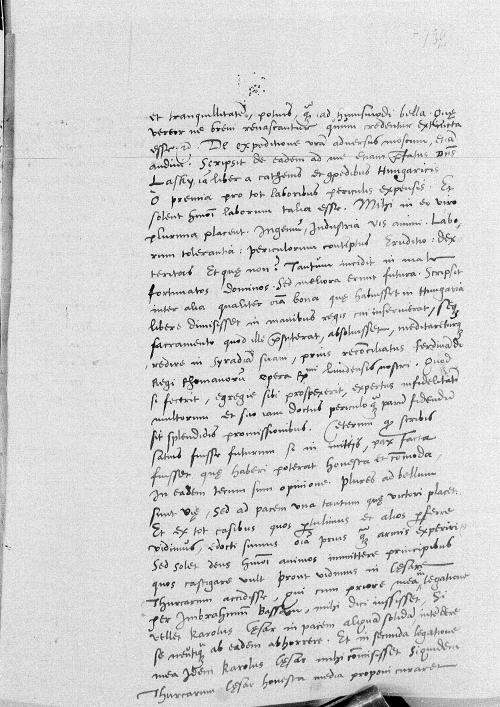 et tranquillitatē, potius, q̄ ad huiusmodi bella. Quę
vereor ne brevi renascantur quum credentur extincta
esse. De expeditione vr̄a adversus moscum, etiā
audivi. Scripsit de eadem ad me etiam p̄fatus Dn̄s
Lasky, iā liber a cathenis et cōpedibus Hungaricis
O premia pro tot laboribus periculis expensis. Et
solent hm̄oi laborum talia esse. Mihi in eo viro
plurima placent. Ingeniū, Industria vis animi. Labo,
rum tolerantia: periculorum contēptus Eruditio: dex
teritas Et quę non? Tantum incidit in male
fortunatos Dominos. Sed meliora erunt futura. Scripsit
inter alia qualiter oīa bona quę habuisset in Hungaria
libere dimisisset in manibus regis cui inservierat, seq̧
sacramento quod illi p̄stiterat, absoluisset, meditareturq̧
redire in Syradiā suam, prius reconciliatus Ferdinādo
Regi Rhomanorū opera Rm̄i lundensis nostri. Quod
si fecerit, egregie sibi prospexerit, expertus infidelitatē
multorum et suo iam doctus periculo q̄ parū fidendū
sit splendidis promissionibus. Ceterum q̄ scribis
satius fuisse futurum si in initiis, pax facta
fuisset quę haberi poterat honesta et cōmoda,
In eadem tecum sum opinione. Plures ad bellum
sunt vię, sed ad pacem vna tantum quę victori placet.
Et ex tot casibus quos p̄tulimus et alios p̄ferre
vidimus, edocti sumus oīa prius q̄ armis experiri
Sed solet deus hm̄oi animos immittere principibus
quos castigare vult prout vidimus in Cesare
Thurcarum accidisse, qui cum priore mea legatione
per Imbrahimum Bassam, mihi dici iussisset, Si
vellet Karolus Cęsar in pacem aliquā solidā intēdere
se neutiq̄ ab eadem abhorrere. Et in secunda legatione
mea Idem Karolus Cęsar mihi cōmisisset Siquidem
Thurcarum Cęsar honesta media proponi curaret